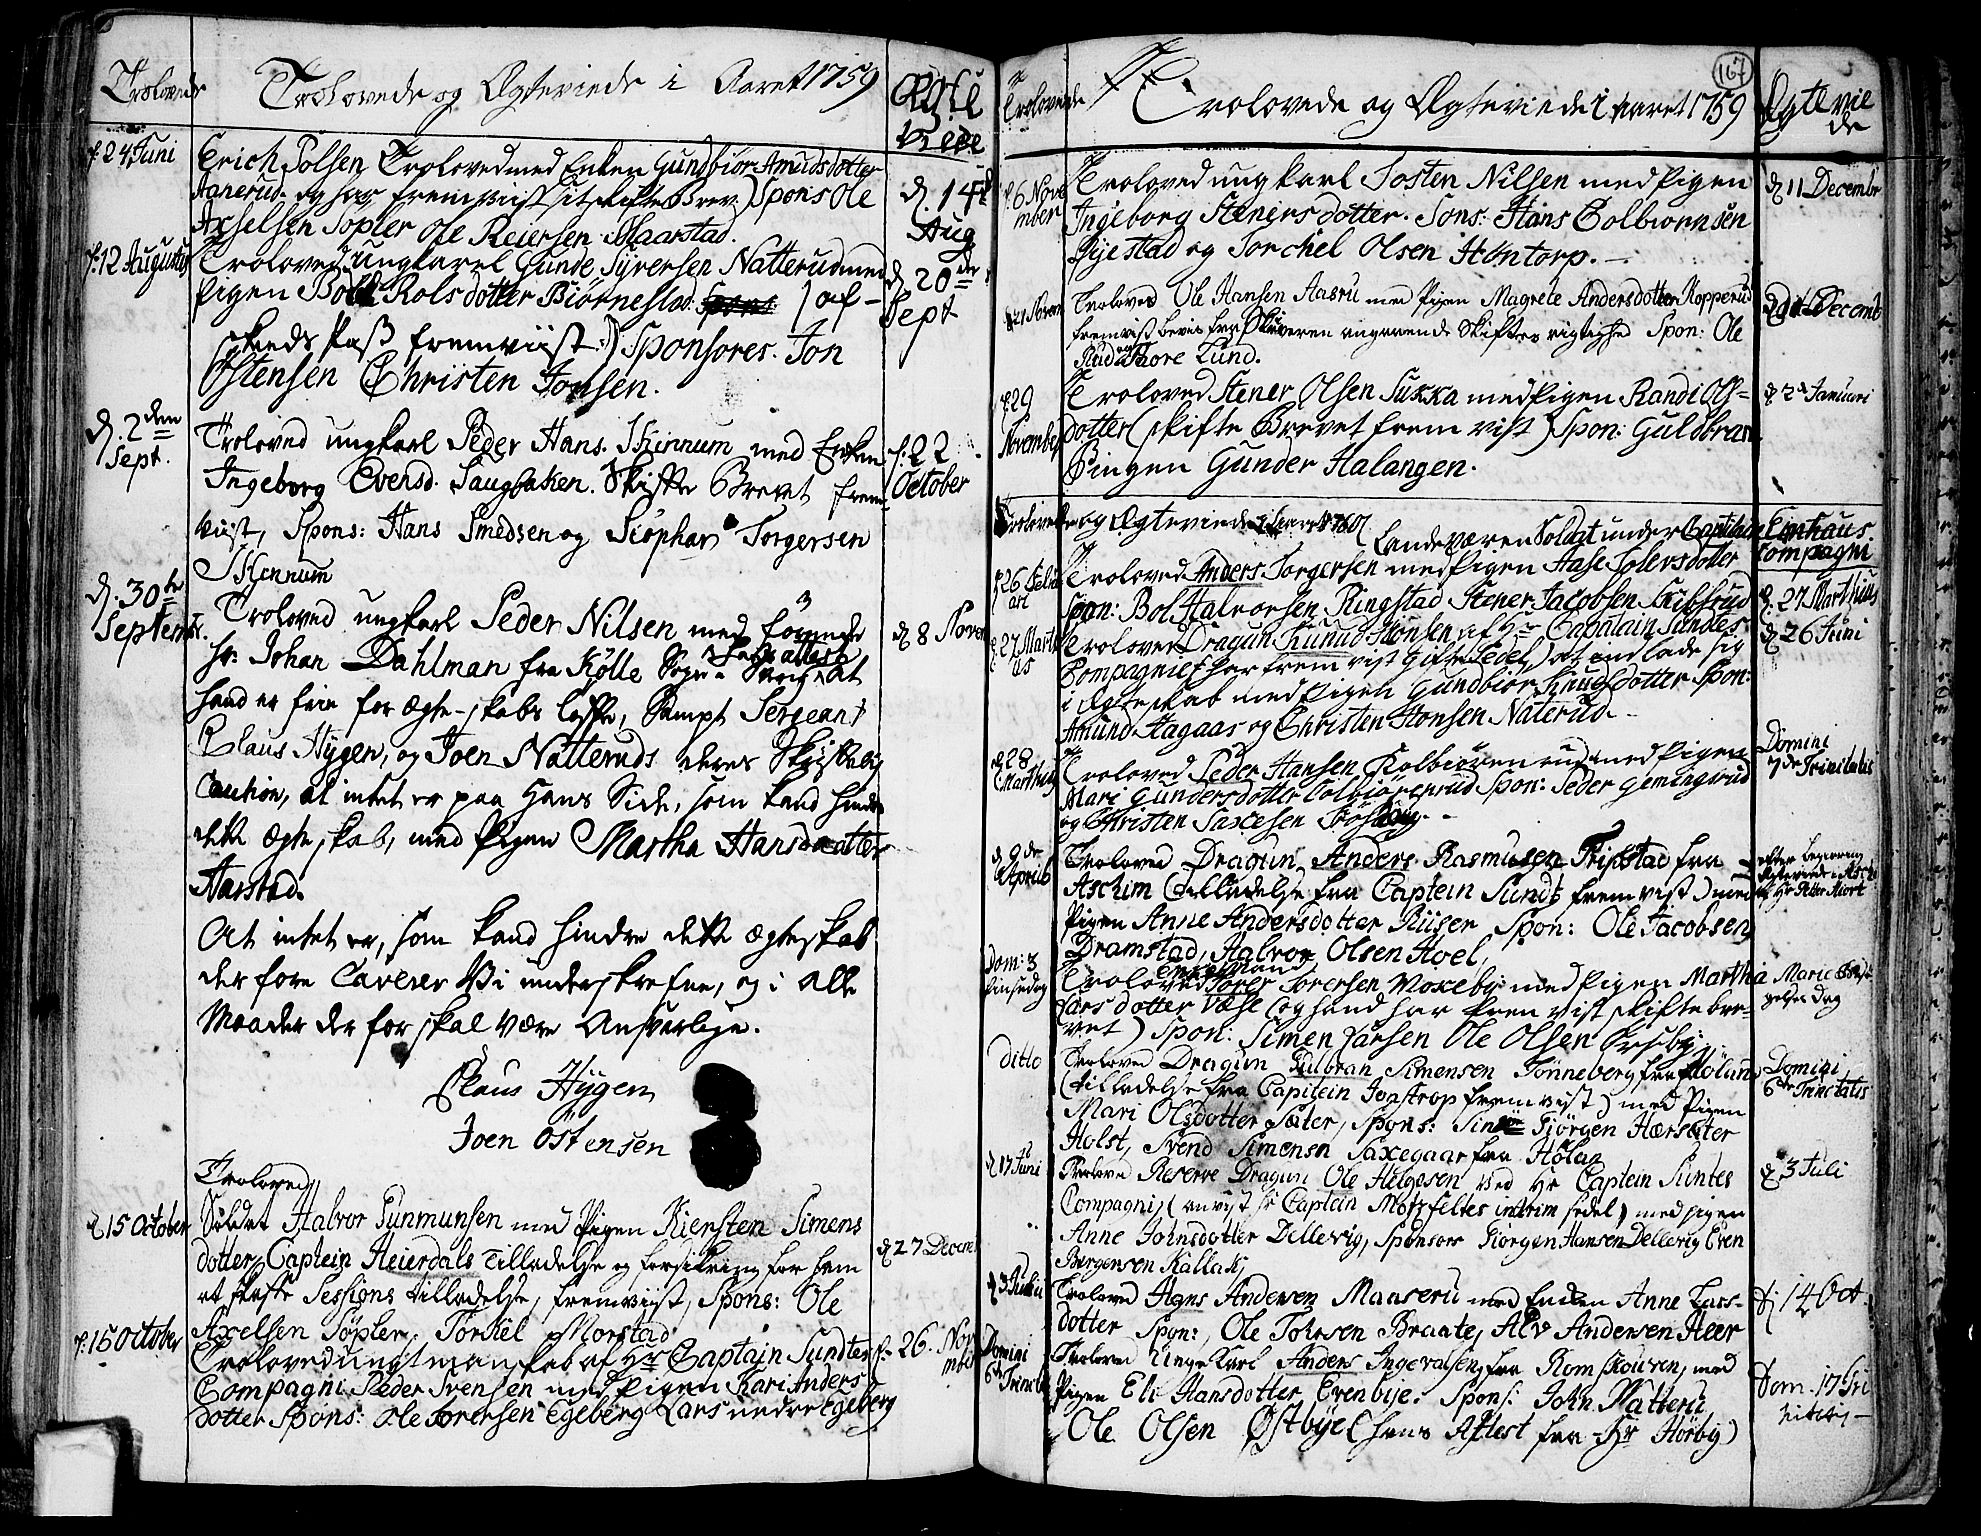 Trolovede
Trolovede og Ægteviede i Aaret 1759
Ægte
Viede
d. 24 Juni
Erich Polsen Troloved med Enken Gundbior Amundsdotter
Aanerud og har fremviist sit skifte Brev) Spons Ole
Axselsen Sopler Ole Reiersen Haarstad.
d. 14de
Aug
d. 12 Augustus
Troloved ungkarl Gunde Syversen Natterud med
pigen Rolsdotter Biørnestad. af-
skeeds Pass fremviist) Sponsores. Jon
Østensen Christen Jonsen.
d 20de
Sept
d. 2den
Sept.
Troloved ungkarl Peder Hans. Skinnum med Enken
Ingeborg Evensd. Saugbaken. Skifte Brevet frem-
viist, Spons: Hans Smedsen og Siophar Torgersen
Skinnum
d. 22
October
d. 30te
Septembr.
Troloved ungkarl Peder Nilsen med forrende
hr: Johan Dahlman fra Kølle Sogn i Sverig, at
hand er frie for ægte-skabs løffte, Sampt Sergeant
Claus Hygen, og Joen Natteruds deres Skriftelig
Caution, at intet er paa Hans Side, som kand hindre
dette ægteskab, med Pigen Martha Hansdaatter
Harstad.
d 8 Novem
At intet er, som kand hindre dette ægteskab
derfore Caverer Vi underskrefne, og i alle
Maader derfor skal være Ansvarlige.
Claus Hygen
Joen Østensen
Troloved
d 15 October
Soldat Halvor Gunmunsen med Pigen Kiersten Simens
dotter, Captein Heierdals Tilladelse og forsikring for ham
at skaffe Sessions tilladelse, fremviist, Spons: Ole
Axelsen Søpler, Torkel Morstad
d 27 Decem
d. 15 October
Troloved ungt manskab af Hr Captain Sundtes
Compagni Peder Svensen med Pigen Kari Anders
dotter Spons: Ole Sorersen Egeberg Lars nedre Egeberg
d. 26. Nov
mber
167
Trolovede
Trolovede og Ægteviede i aaret 1759
Ægtevie
de
d. 6 Nove
mber
Troloved ungkarl Josten Nilsen med Pigen
Ingeborg Stenersdotter. Sons: Hans Colbiornsen
Byestad og Torchel Olsen Homtorp.
d 11 Decembr
d 21 Novem
Troloved Ole Hansen Aasru med Pigen Magrete Andersdotter Kopperud
fremviist bevis fra Skriveren angaaende Skiftes rigtighed Spon: Ole
Rud og Thore Lund.
Decemb
d. 29
November
Troloved Stener Olsen Sukka med Pigen Randi Ols-
dotter (skifte Brevet frem vist) Spon: Guldbran
Bingen Gunder Halangen.
d 2d Januari
Trolovede og Ægteviede i aaret 1760
Landeværen Soldat under Captitain Emhaus.
Compagni
d 26 Februari
Troloved Anders Torgersen med Pigen Aase Tolersdotter
Spon: Bol Halvorsen Ringstad Stener Jacobsen Skibsrud
d. 27 Marthius
d 27 Martius
Troloved Dragun Knud Honsen af Hr Capatain Sundtes
Compagniet har fremvist gifte Sedel) at endlade sig
i Ægteskab med Pigen Gundbior Knudsdotter Spon:
Amund Hagaas og Christen Honsen Naterud.
d 26 Juni
d 28
Marthius
Troloved Peder Hansen Kolbiørenrud med Pigen
Mari Gundersdotter Colbiørenrud Spon: Peder Gemingrud
og Christen Saxesen
Domini
7de Trinitatis
d 9de
Aprill
Troloved Dragun Anders Rasmusen Trippstad fra
Aschim (tilladelse fra Captein Sundt fremvist) med
Pigen Anne Andersdotter Riiser Spon: Ole Jacobsen
Dramstad, Halvor Olsen Hoel,
efter begiering
Ægteviede i Aschi
af Hr Peter Hiort
Dom: 3
pinsedag
Troloved Enkemand Torer Torersen Moxeby med Pigen Martha
Larsdotter Væse (og hand har frem vist skifte bre-
vet) Spon: Simen Larsen Ole Olsen
Marie Besø-
gelses Dag
ditto
Troloved Dragun Gulbran Simensen Tonneberg fra Høland
(tilladelse fra Capitein Jonstrop fremvist) med Pigen
Mari Olsdotter Sæter, Spons: Jiörgen Hærsæter
Holst, Svend Simensn Saxegaar fra Hölan
Domini,
6te Trinitatis
d 17 Juni
Troloved Reserve Dragun Ole Helgesen ved Hr Captein Suntes
Compagni, (anvist hr Captain Motzfeltes intrim sedel) med pigen
Anne Johnsdotter Dellevig, Sponsors Jiörgen Hansen Dellevig Even
Børgensen Kallak,
d. 3 Juli
d 3 Julii
Troloved Hans Andersen Maaseru med Enken Anne Lars-
dotter Spon:, Ole Tohrsen Braate, Alv Andersen Heer
d. 14 Oct.
Domini
6te Trinit
Troloved Unge Karl Anders Ingevalsen, fra Romskouven, med
Pigen Eli Hansdotter Evenbye. Spons: John Natteru
Ole Olsen Østbye (hans Attest fra Hr Hörby)
Dom: 17 Tri
nitatis